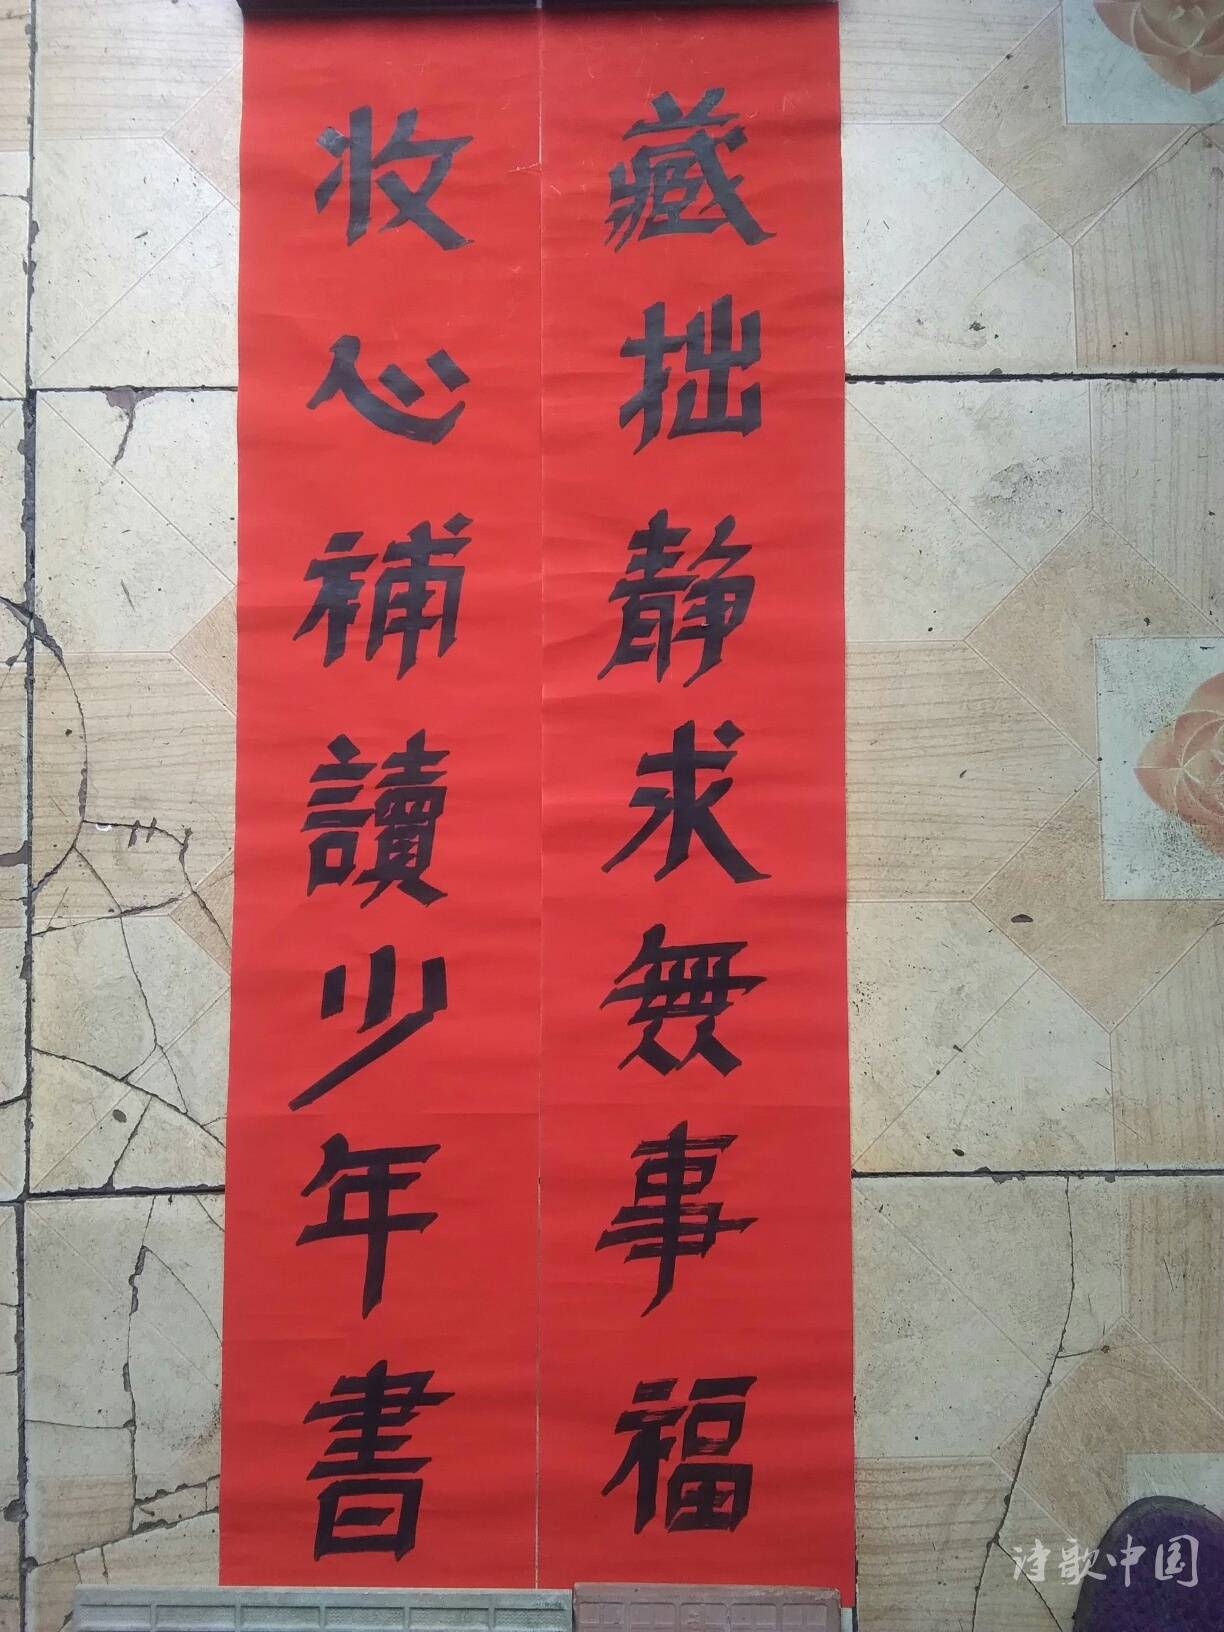 藏拙静求無事福
收心補讀少年書
诗歌中国